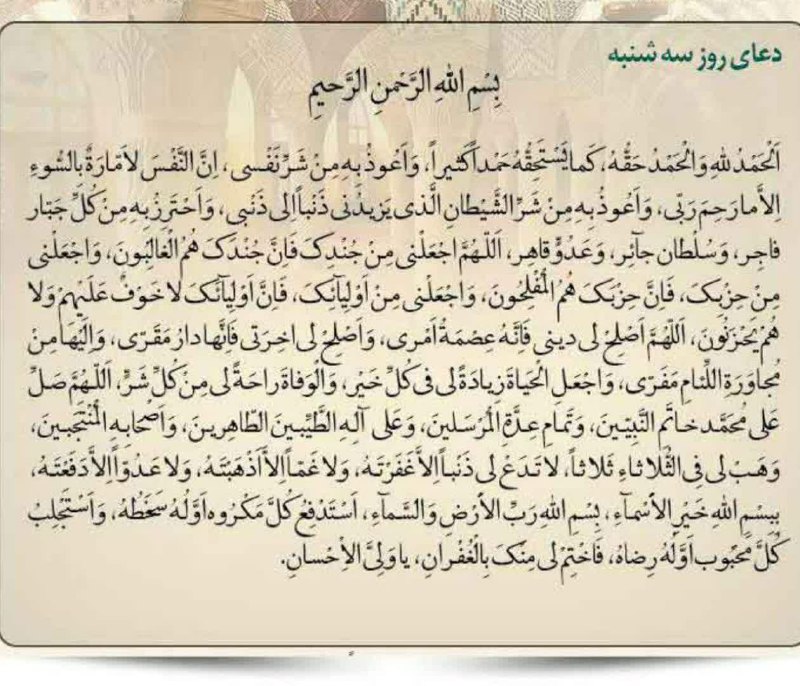 دعای روز سه شنبه
بِسْمِ اللهِ الرَّحْمنِ الرَّحیمِ
اَلْحَمْدُ لِلّٰهِ وَالْحَمْدُ حَقُّهُ، کَما یَسْتَحِقُّهُ حَمْداً کَثیراً، وَاَعُوذُ بِهِ مِنْ شَرِّ نَفْسی، اِنَّ النَّفْسَ لَاَمّارَةٌ بِالسُّوءِ
اِلاَّ ما رَحِمَ رَبّی، وَاَعُوذُ بِهِ مِنْ شَرِّ الشَّیْطانِ الَّذی یَزیدُنی ذَنْباً اِلی ذَنْبی، وَاَحْتَرِزُ بِهِ مِنْ کُلِّ جَبّارٍ
فاجِرٍ، وَسُلْطانٍ جآئِرٍ، وَعَدُوٍّ قاهِرٍ، اَللّهُمَّ اجْعَلْنی مِنْ جُنْدِکَ فَاِنَّ جُنْدَکَ هُمُ الْغالِبُونَ، وَاجْعَلْنی
مِنْ حِزْبِکَ، فَاِنَّ حِزْبَکَ هُمُ الْمُفْلِحُونَ، وَاجْعَلْنی مِنْ اَوْلِیآئِکَ، فَاِنَّ اَوْلِیآئَکَ لا خَوْفٌ عَلَیْهِمْ وَلا
هُمْ یَحْزَنُونَ، اَللّهُمَّ اَصْلِحْ لی دینی فَاِنَّهُ عِصْمَةُ اَمْری، وَاَصْلِحْ لی اخِرَتی فَاِنَّها دارُ مَقَرّی، وَاِلَیْها مِنْ
مُجاوَرَةِ اللِّئامِ مَفَرّی، وَاجْعَلِ الْحَیاةَ زِیادَةً لی فی کُلِّ خَیْرٍ، وَالْوَفاةَ راحَةً لی مِنْ کُلِّ شَرٍّ، اَللّهُمَّ صَلِّ
عَلی مُحَمَّدٍ خاتَمِ النَّبِیّینَ، وَتَمامِ عِدَّةِ الْمُرْسَلینَ، وَعَلی آلِهِ الطَّیِّبینَ الطّاهِرینَ، وَاَصْحابِهِ الْمُنْتَجَبینَ،
وَهَبْ لی فِی الثُّلاثاءِ ثَلاثاً، لا تَدَعْ لی ذَنْباً اِلاَّ غَفَرْتَهُ، وَلا غَمّاً اِلاَّ اَذْهَبْتَهُ، وَلا عَدُوّاً اِلاَّ دَفَعْتَهُ،
بِبِسْمِ اللهِ خَیْرِ الْاَسْمآءِ، بِسْمِ اللهِ رَبِّ الْاَرْضِ وَالسَّمآءِ، اَسْتَدْفِعُ کُلَّ مَکْرُوهٍ اَوَّلُهُ سَخَطُهُ، وَاَسْتَجْلِبُ
کُلَّ مَحْبُوبٍ اَوَّلُهُ رِضاهُ، فَاخْتِمْ لی مِنْکَ بِالْغُفْرانِ، یا وَلِیَّ الْاِحْسانِ.